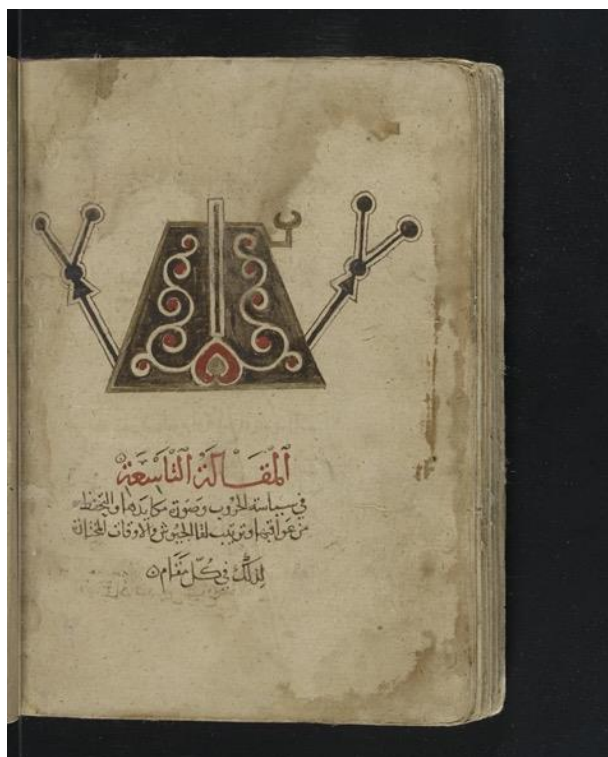 المقالة التاسعة
في سياسة الحروب وصورة مكايدها والتحفظ
من عواقبها وترتيب لقا الجيوش والاوقات المختارة
لذلك في كل مقام